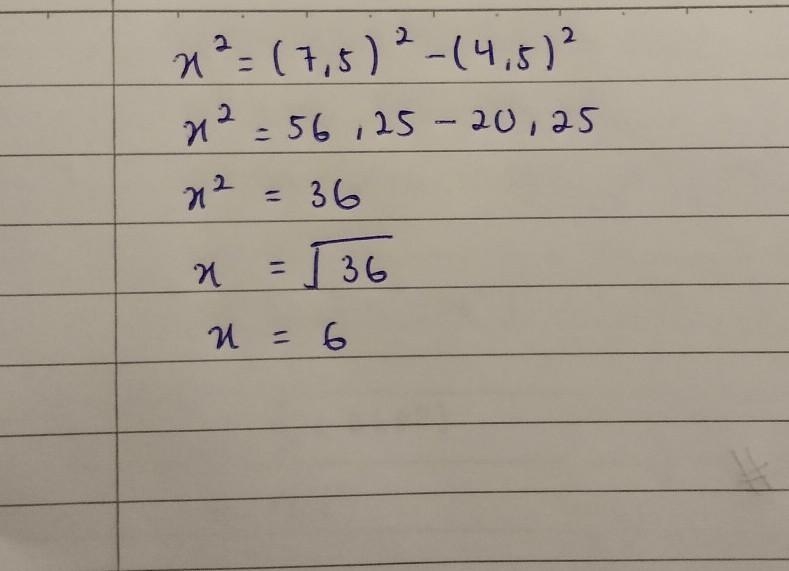 x² = (7,5)² - (4,5)²
x² = 56,25 - 20,25
x² = 36
x = √36
x = 6